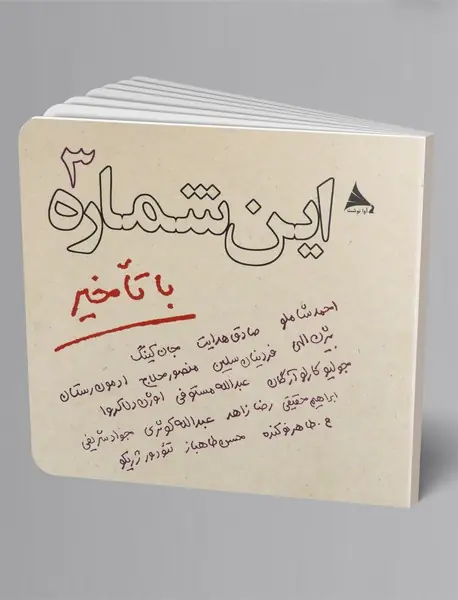 ۳
این شماره
آوا نوشت
با تأخیر
احمد شاملو صادق هدایت جان کیتگ
بیژن الهی فردینان سلین منصور حلاج ادمون رستان
جولیو کارلو آرگان عبدالله مستوفی اوژن دلاکروا
ابراهیم حقیقی رضا زاهد عبدالله کوثری جواد شریفی
ع. طاهر نوکنده حسن طاهباز تئودور ژریکو